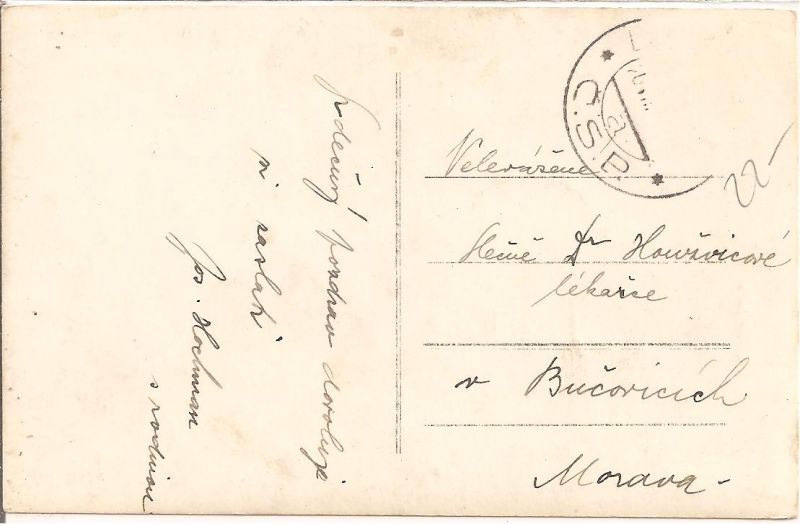 Srdečný pozdrav dovoluje
si zaslati
Jos. Hochman
s rodinou
Č.S.P.
22-
Velevážené
Dr
lékařce
v Bučovicích
Morava-